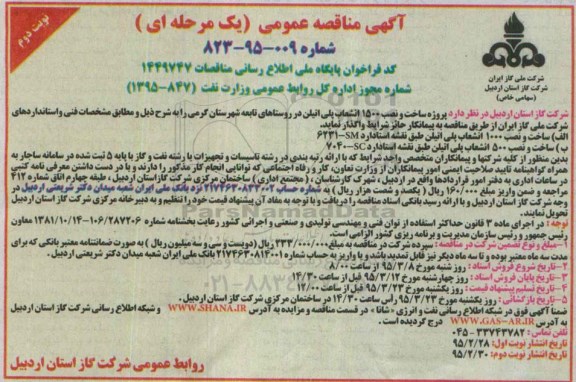 نوبت دوم
آگهی مناقصه عمومی (یک مرحله ای)
شماره ۰۰۹-۹۵-۸۲۳
کد فراخوان پایگاه ملی اطلاع رسانی مناقصات ۱۴۴۹۷۴۷
شماره مجوز اداره کل روابط عمومی وزارت نفت (۸۴۷-۱۳۹۵)
شرکت ملی گاز ایران
شرکت گاز استان اردبیل
(سهامی خاص)
شرکت گاز استان اردبیل در نظر دارد پروژه ساخت و نصب ۱۵۰۰ انشعاب پلی اتیلن در روستاهای تابعه شهرستان گرمی را به شرح ذیل و مطابق مشخصات فنی و استانداردهای
شرکت ملی گاز ایران از طریق مناقصه به پیمانکار حائز شرایط واگذار نماید.
الف) ساخت و نصب ۱۰۰۰ انشعاب پلی اتیلن طبق نقشه استاندارد SM-۶۲۳۱
ب) ساخت و نصب ۵۰۰ انشعاب پلی اتیلن طبق نقشه استاندارد SC-۷۰۴۰
بدین منظور از کلیه شرکتها و پیمانکاران متخصص واجد شرایط که با ارائه رتبه بندی در رشته تاسیسات و تجهیزات یا رشته نفت و گاز با پایه ۵ ثبت شده در سامانه ساجار به
همراه گواهینامه تایید صلاحیت ایمنی امور پیمانکاران از وزارت تعاون، کار و رفاه اجتماعی که توانایی انجام کار مذکور را دارند و یا در دست داشتن معرفی نامه کتبی
در ساعات اداری به دفتر امور قراردادها واقع در اردبیل، شهرک کارشناسان، (مجتمع اداری) ساختمان مرکزی شرکت گاز استان اردبیل، طبقه چهارم اتاق شماره ۴۱۲
مراجعه و در ازاء واریز مبلغ ۱۶۰/۰۰۰ ریال (یکصد و شصت هزار ریال) به شماره حساب ۲۱۷۴۶۳۰۸۳۳۰۰۲ نزد بانک ملی ایران شعبه میدان دکتر شریعتی اردبیل در
وجه شرکت گاز استان اردبیل و با ارائه رسید بانکی اسناد مناقصه را دریافت و با توجه به مفاد آن پیشنهاد قیمت خود را تنظیم و به دبیرخانه مرکزی شرکت گاز استان اردبیل
تحویل نمایند.
توجه: در اجرای ماده ۳ قانون حداکثر استفاده از توان فنی و مهندسی تولیدی و صنعتی و اجرائی کشور رعایت بخشنامه شماره ۱۰۶/۲۸۷۲۰۶-۱۳۸۱/۱۰/۱۴ معاون
رئیس جمهور و رئیس سازمان مدیریت و برنامه ریزی کشور الزامی است.
۱-مبلغ و نوع تضمین شرکت در مناقصه: سپرده شرکت در مناقصه به مبلغ ۲۳۳/۰۰۰/۰۰۰ ریال (دویست و سی و سه میلیون ریال) به صورت ضمانتنامه معتبر بانکی که برای
مدت سه ماه معتبر بوده و تا سه ماه دیگر نیز قابل تمدید باشد و یا واریز به شماره حساب ۲۱۷۴۶۳۰۸۱۴۰۰۱ بانک ملی ایران شعبه میدان دکتر شریعتی اردبیل.
۲-تاریخ شروع فروش اسناد: روز شنبه مورخ ۹۵/۳/۸ از ساعت ۸/۰۰
۳-تاریخ پایان فروش اسناد: روز چهارشنبه مورخ ۹۵/۳/۱۲ تا ساعت ۱۴/۳۰
۴-تاریخ تسلیم پیشنهاد قیمت: روز یکشنبه مورخ ۹۵/۳/۲۳ تا ساعت ۱۲/۰۰
۵-تاریخ بازگشائی: روز یکشنبه مورخ ۹۵/۳/۲۳ رأس ساعت ۱۴/۳۰ در ساختمان مرکزی شرکت گاز استان اردبیل.
ضمنا آگهی فوق در شبکه اطلاع رسانی نفت و انرژی «شانا» در قسمت مناقصه و مزایده به آدرس WWW.SHANA.IR و شبکه اطلاع رسانی شرکت گاز استان اردبیل
به آدرس WWW.GAS-AR.IR درج گردیده است.
تلفن تماس: ۳۳۷۴۳۷۸۲-۰۴۵
تاریخ انتشار نوبت اول: ۹۵/۲/۲۸
تاریخ انتشار نوبت دوم: ۹۵/۲/۳۰
روابط عمومی شرکت گاز استان اردبیل